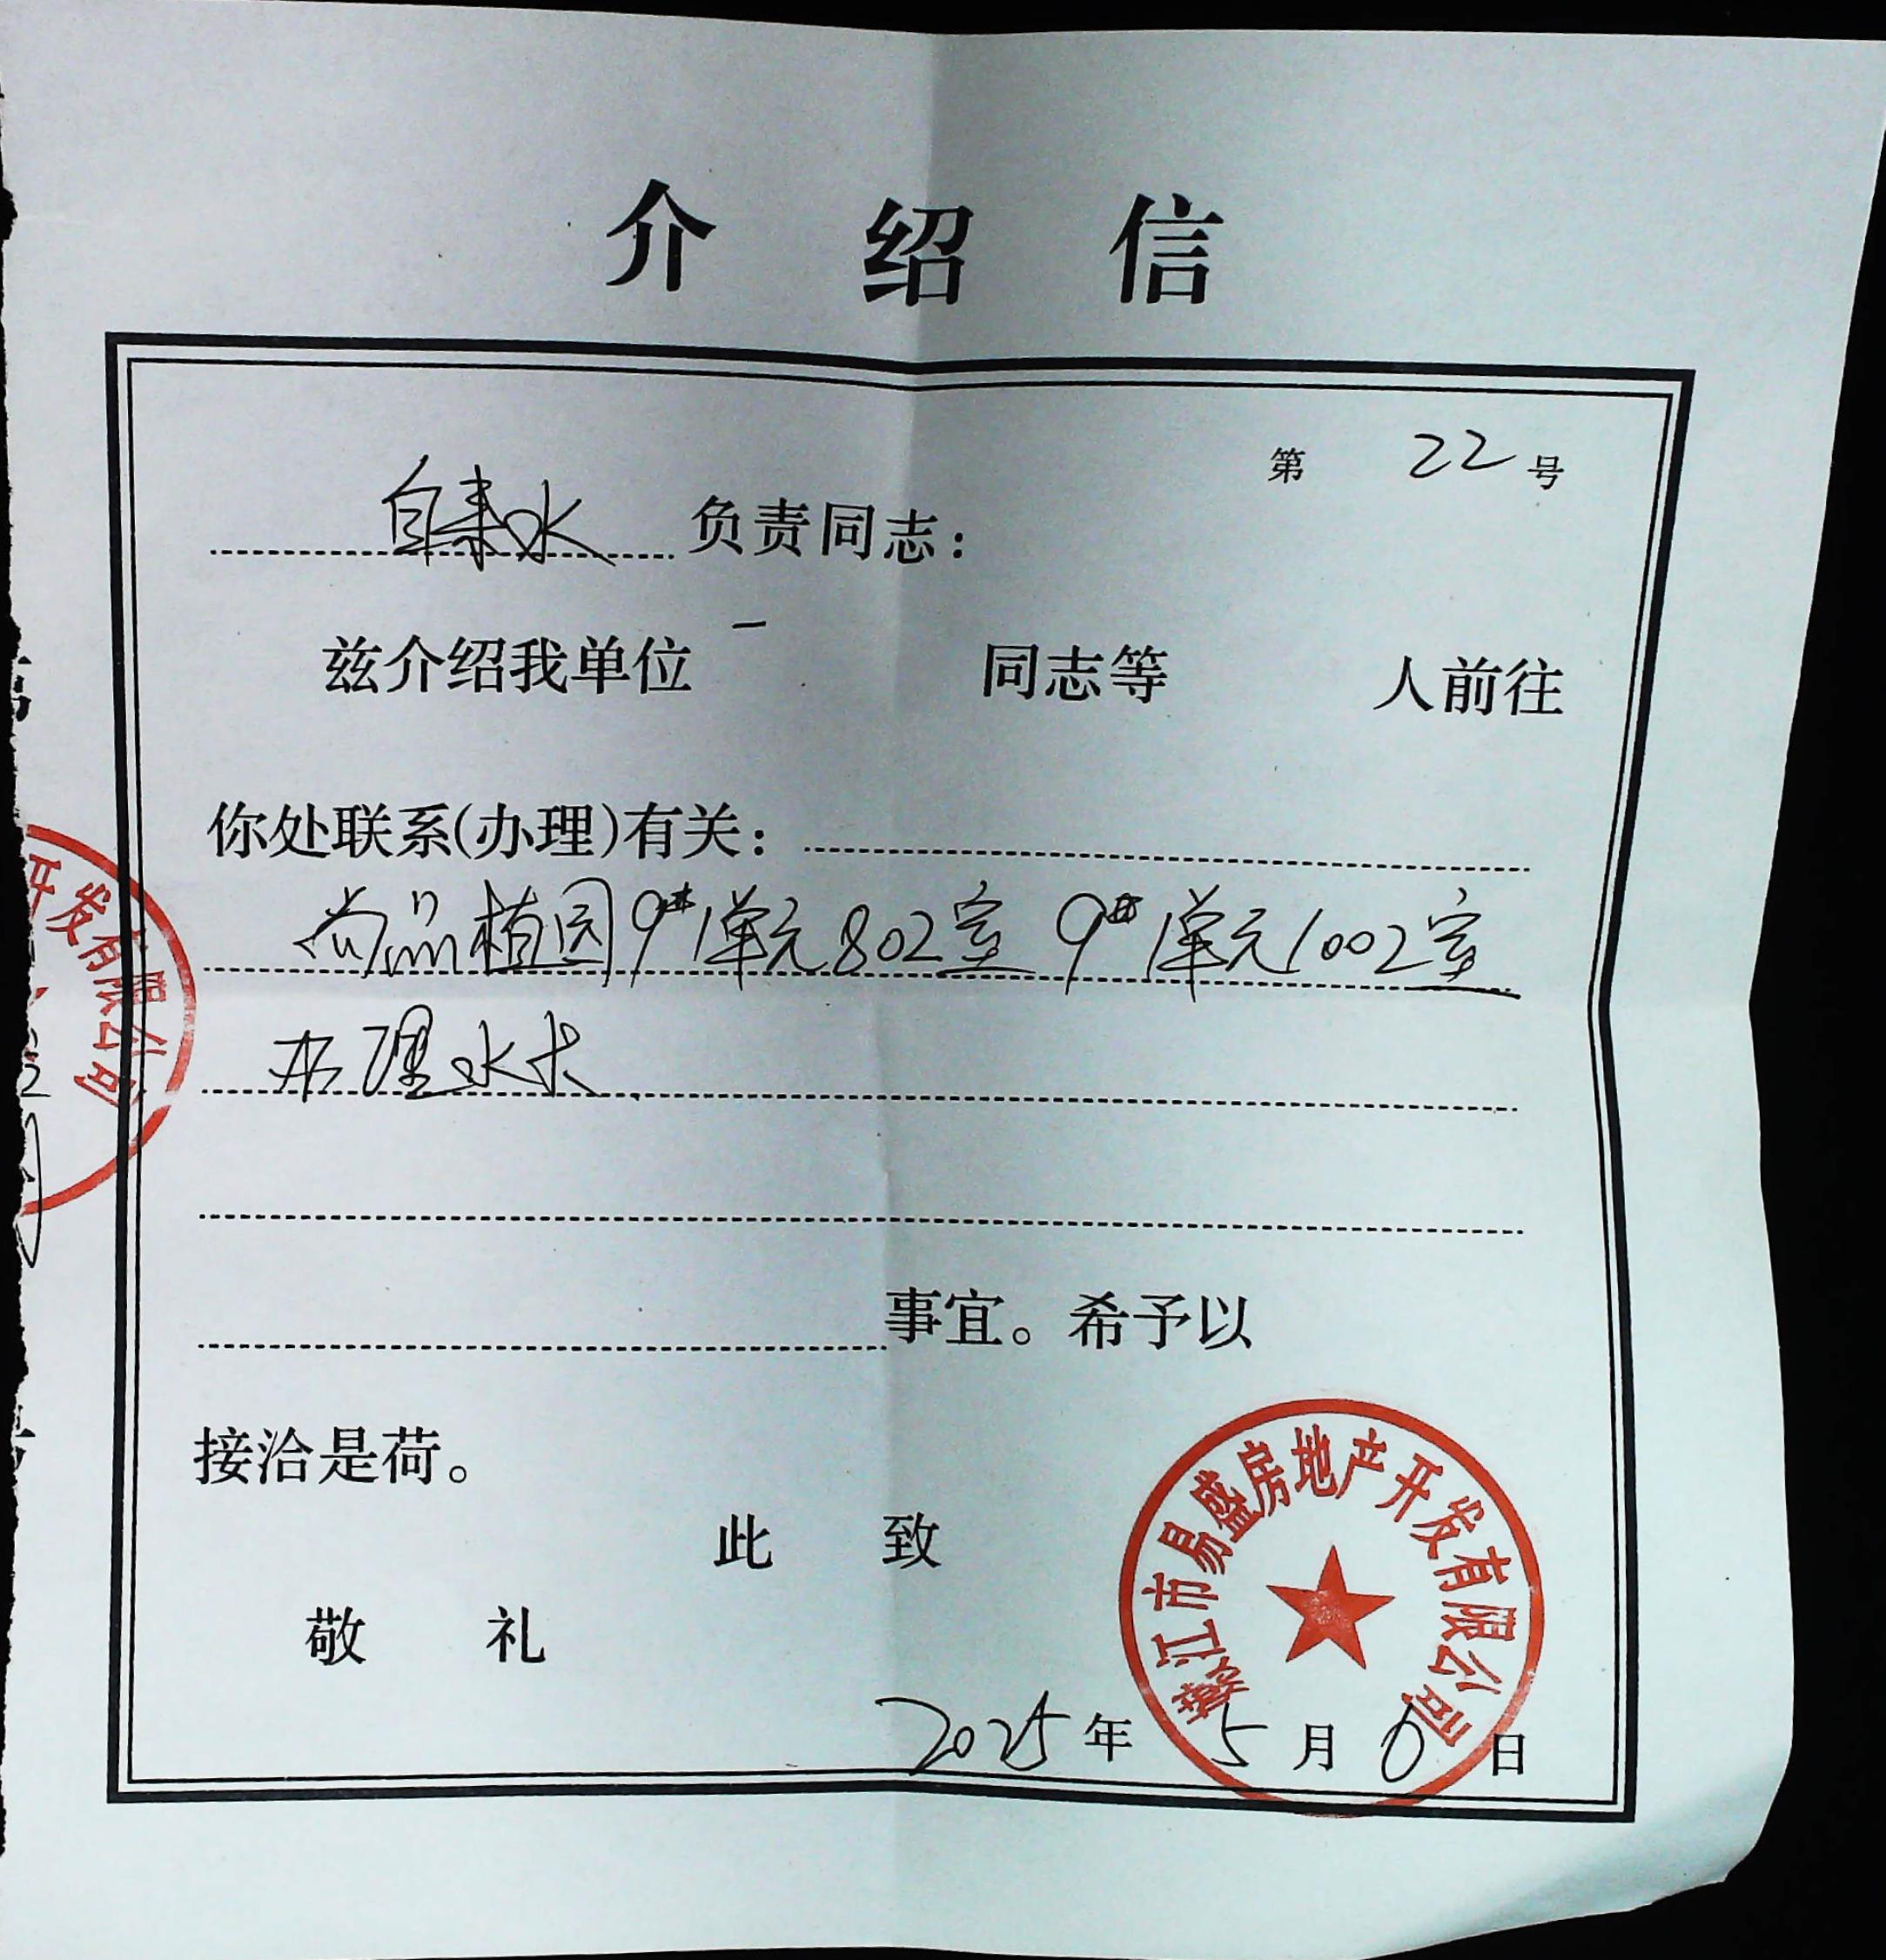 介绍信
第 22 号
自来水 负责同志：
兹介绍我单位 一 同志等 人前往
你处联系(办理)有关：
尚品植园9#1单元802室 9#1单元1002室
办理水卡
事宜。希予以
接洽是荷。
此致
敬礼
江市易盛房地产开发有限公司
2025年5月6日
开发有限公司